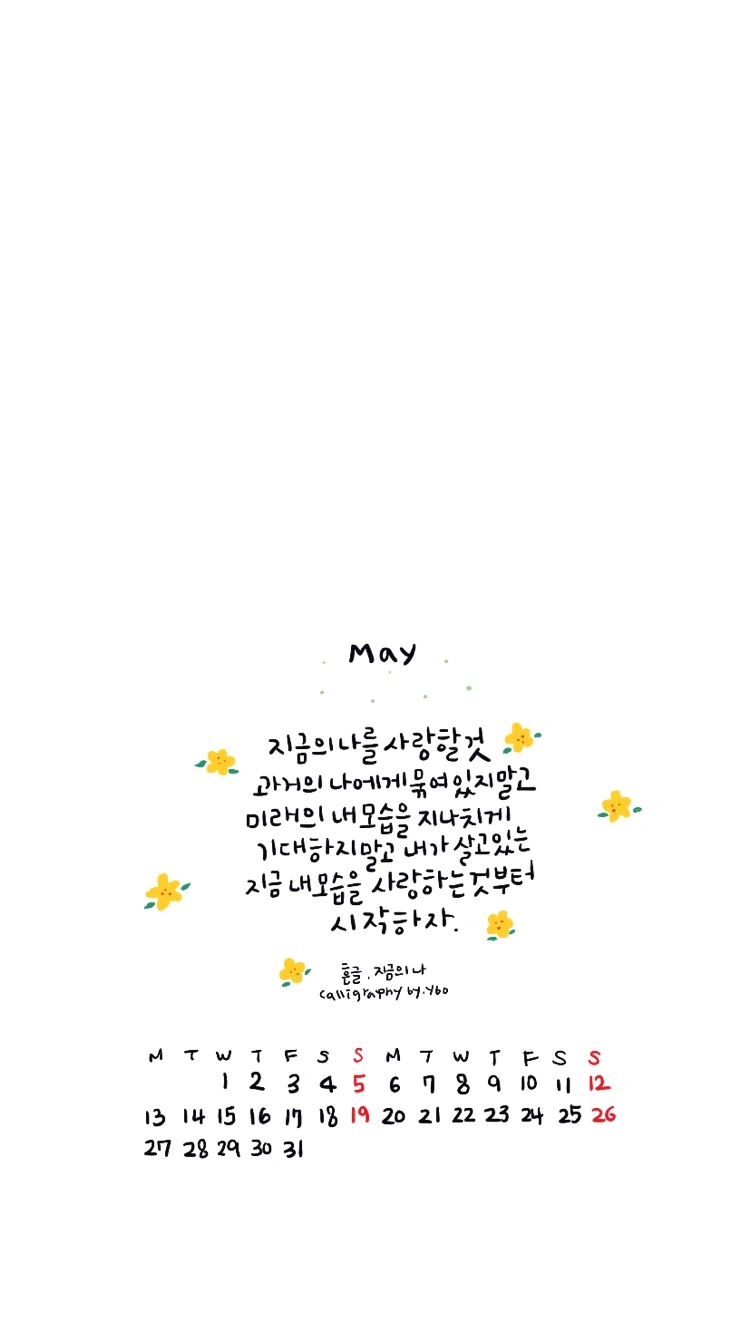 May
지금의 나를 사랑할 것
과거의 나에게 묶여있지말고
미래의 내모습을 지나치게
기대하지말고 내가 살고있는
지금 내모습을 사랑하는것부터
시작하자.
흔글 . 지금의 나
calligraphy by.ybo
M T W T F S S M T W T F S S
1 2 3 4 5 6 7 8 9 10 11 12
13 14 15 16 17 18 19 20 21 22 23 24 25 26
27 28 29 30 31